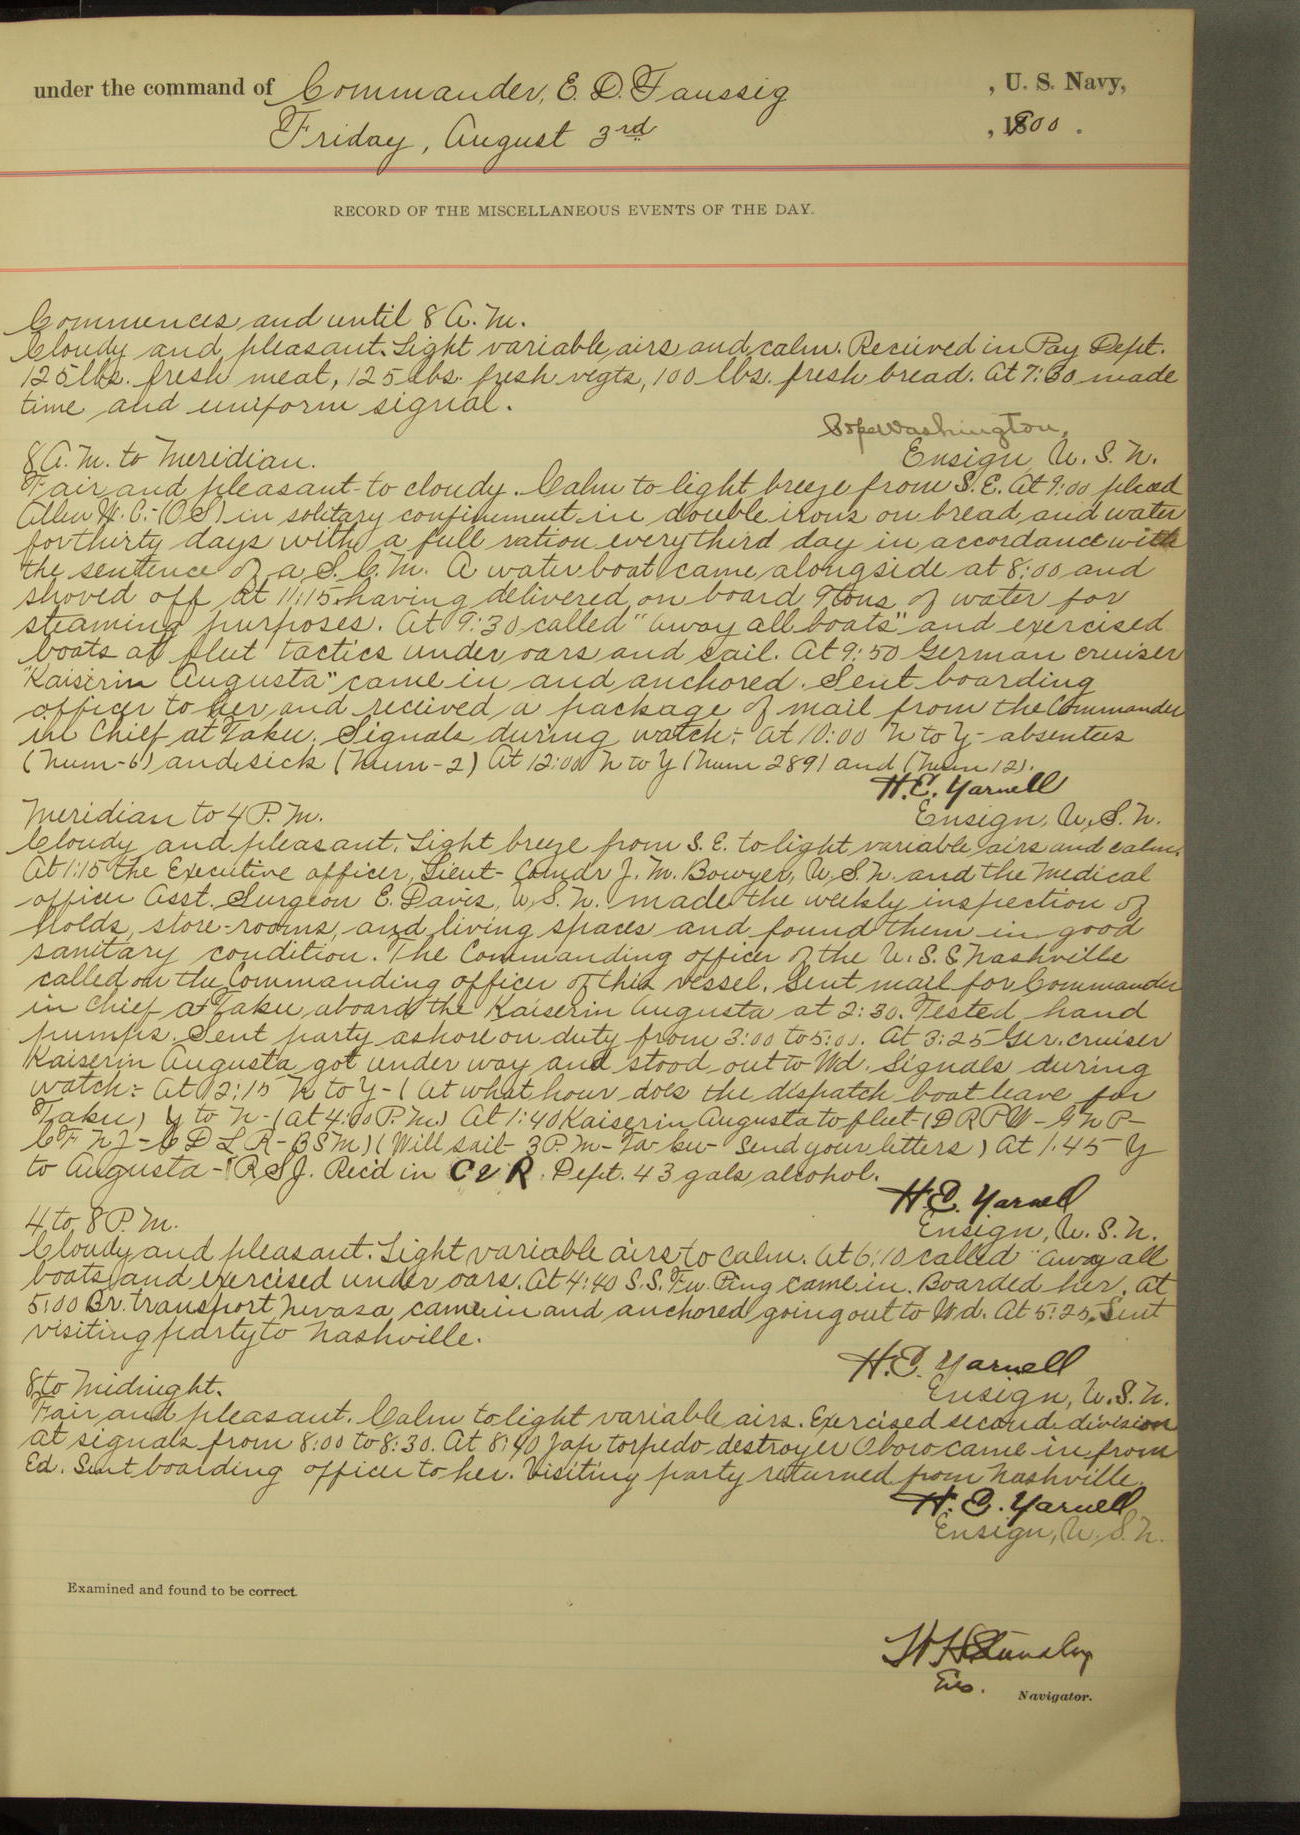 under the command of Commander, E. D. Taussig , U. S. Navy,
Friday, August 3rd , 1900 .
RECORD OF THE MISCELLANEOUS EVENTS OF THE DAY.
Commences and until 8 A. M.
Cloudy and pleasant. Light variable airs and calm. Received in Pay Dept.
125 lbs. fresh meat, 125 lbs. fresh vegts, 100 lbs. fresh bread. At 7:30 made
time and uniform signal.
Pope Washington,
8 A. M. to Meridian.
Ensign, U. S. N.
Fair and pleasant to cloudy. Calm to light breeze from S. E. At 9:00 placed
Allen W. C. (OS) in solitary confinement in double irons on bread and water
for thirty days with a full ration every third day in accordance with
the sentence of a S. C. M. A water boat came alongside at 8:00 and
shoved off at 11:15 having delivered on board 9 tons of water for
steaming purposes. At 9:30 called "away all boats" and exercised
boats at fleet tactics under oars and sail. At 9:50 German cruiser
"Kaiserin Augusta" came in and anchored. Sent boarding
officer to her and received a package of mail from the Commander
in Chief at Taku. Signals during watch:- At 10:00 N to Y- absentees
(Num-6) and sick (Num-2) At 12:00 N to Y (Num 289) and (Num 12).
H. E. Yarnell
Meridian to 4 P. M.
Ensign, U. S. N.
Cloudy and pleasant. Light breeze from S. E. to light variable airs and calm.
At 1:15 the Executive officer, Lieut- Comdr J. M. Bowyer, U. S. N. and the Medical
officer Asst. Surgeon E. Davis, U. S. N. made the weekly inspection of
holds, store-rooms, and living spaces and found them in good
sanitary condition. The Commanding officer of the U. S. S Nashville
called on the Commanding officer of this vessel. Sent mail for Commander
in Chief at Taku aboard the Kaiserin Augusta at 2:30. Tested hand
pumps. Sent party ashore on duty from 3:00 to 5:00. At 3:25 Ger. cruiser
Kaiserin Augusta got under way and stood out to Wd. Signals during
watch:- At 12:15 N to Y- (At what hour does the dispatch boat leave for
Taku) Y to N- (at 4:00 P. M.) At 1:40 Kaiserin Augusta to fleet- (D R P W - G N P-
C F N J - C D L R - B S M) (Will sail- 3 P. M- Ta- ku- Send your letters) At 1:45 Y
to Augusta - R S J. Rec'd in C & R. Dept. 43 gals alcohol.
H. E. Yarnell
4 to 8 P. M.
Ensign, U. S. N.
Cloudy and pleasant. Light variable airs to calm. At 6:10 called "away all
boats and exercised under oars. At 4:40 S. S. Fu Ping came in. Boarded her. At
5:00 Br. transport Nevasa came in and anchored going out to Wd. At 5:25 Sent
visiting party to Nashville.
H. E. Yarnell
8 to Midnight.
Ensign, U. S. N.
Fair and pleasant. Calm to light variable airs. Exercised second division
at signals from 8:00 to 8:30. At 8:40 Jap torpedo-destroyer Oboro came in from
Ed. Sent boarding officer to her. Visiting party returned from Nashville.
H. E. Yarnell
Ensign, U. S. N.
Examined and found to be correct.
Navigator.